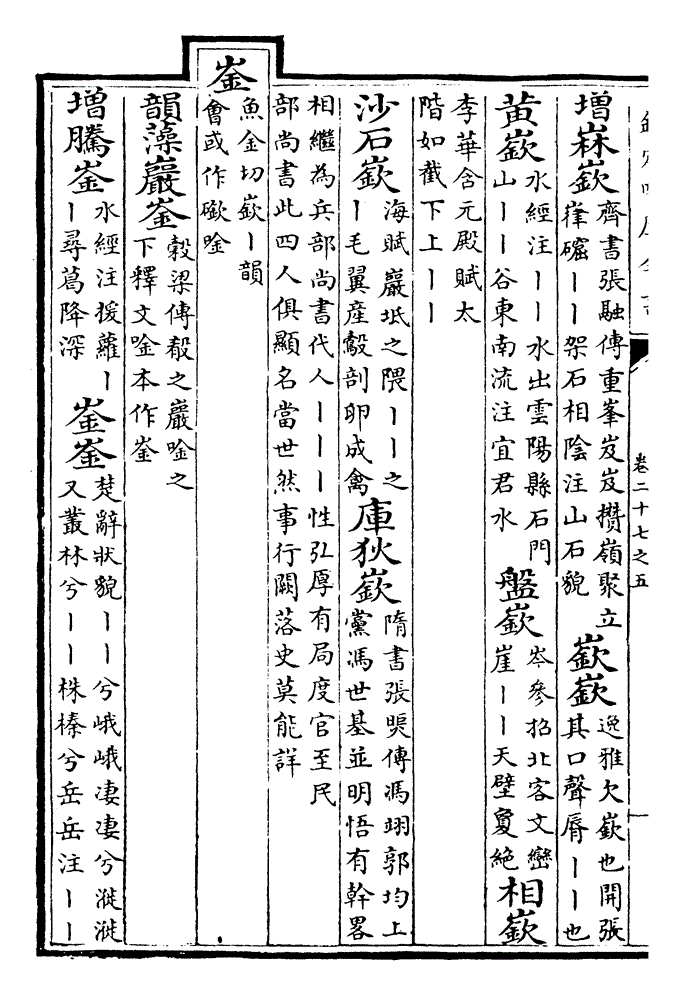 欽定四庫全書
卷二十七之五
一
增崊嶔齊書張融傳重峯岌岌攢嶺聚立
嵂𡾋丨丨架石相陰注山石貌
嶔嶔逸雅欠嶔也開張
其口聲脣丨丨也
黃嶔水經注丨丨水出雲陽縣石門
山丨丨谷東南流注宜君水
盤嶔岑參招北客文巒
崖丨丨天壁夐絶
相嶔
李華含元殿賦太
階如截下上丨丨
沙石嶔海賦巖坻之隈丨丨之
丨毛翼産鷇剖卵成禽
庫狄嶔隋書張煚傳馮翊郭均上
黨馮世基並明悟有幹畧
相繼為兵部尚書代人丨丨丨性弘厚有局度官至民
部尚書此四人俱顯名當世然事行闕落史莫能詳
崟
魚金切嶔丨韻
會或作礆唫
韻藻巖崟穀梁傳殽之巖唫之
下釋文唫本作崟
增騰崟水經注援蘿丨
丨尋葛降深
崟崟楚辭狀貌丨丨兮峨峨凄凄兮漇漇
又叢林兮丨丨株榛兮岳岳注丨丨